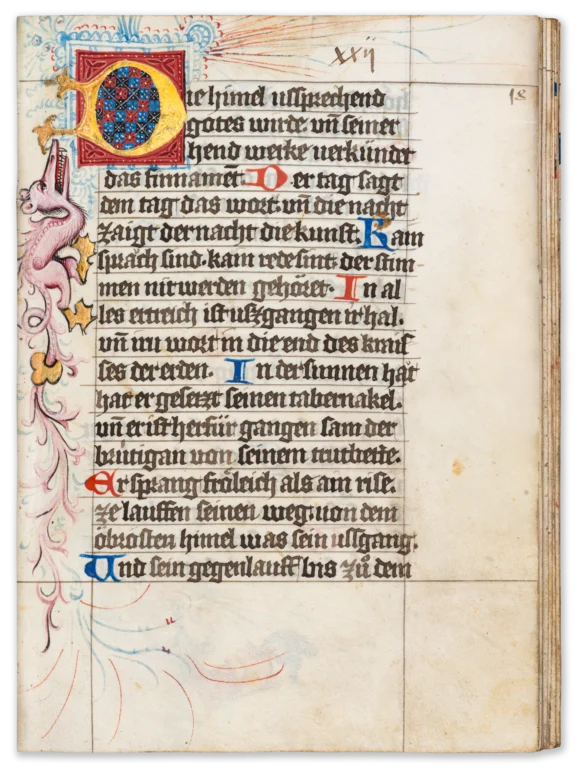 xxij
18
Die himel ussprechend
gotes wirde. vn̄ seiner
hend werke verkündt
das firmamēt. Der tag sagt
dem tag das wort. vn̄ die nacht
zaigt der nacht die kunst. Kain
sprǎch sind. kain rede sint. der stim
men nit werden gehöret. In al
les ertreich ist uszgangen ir hal.
vn̄ iru wort in die end des krais
ses der erden. In der sunnen hǎt
hat er gesetzt seinen tabernakel.
vn̄ er ist herfür gangen sam der
brütigan von seinem trutbette.
Er sprang fröleich als ain rise.
ze lauffen seinen weg. von dem
obrosten himel was sein ussgang.
Und sein gegenlauff bis zů dem